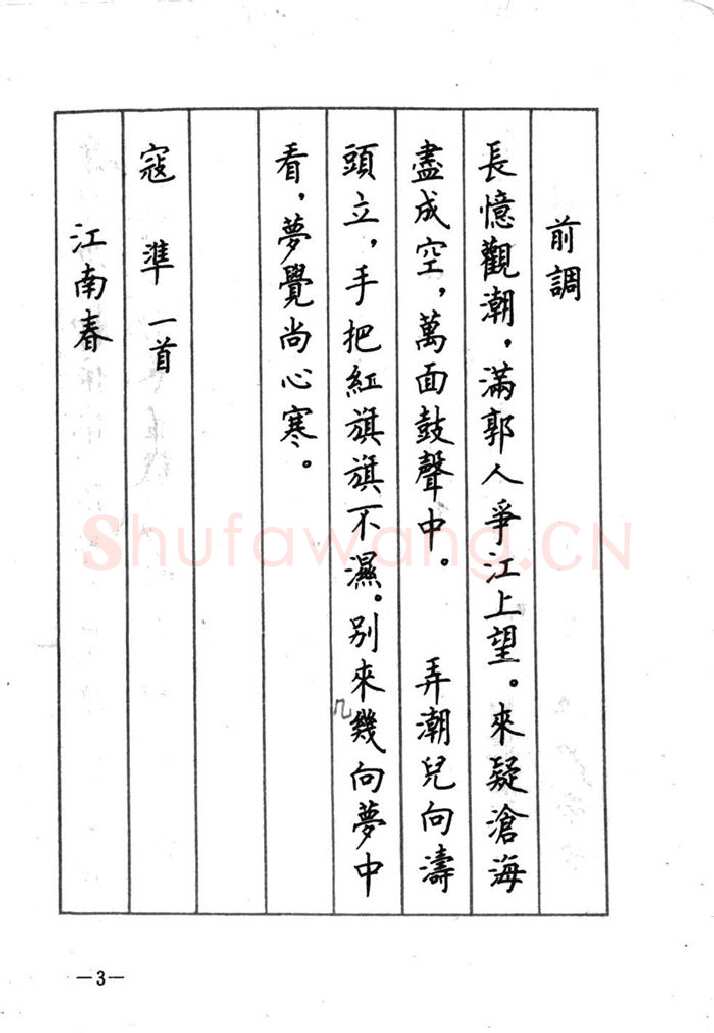 前調
長憶觀潮，滿郭人爭江上望。來疑滄海
盡成空，萬面鼓聲中。　弄潮兒向濤
頭立，手把紅旗旗不濕。别來幾向夢中
几
看，夢覺尚心寒。
寇準一首
江南春
Shufawang.CN
—3—